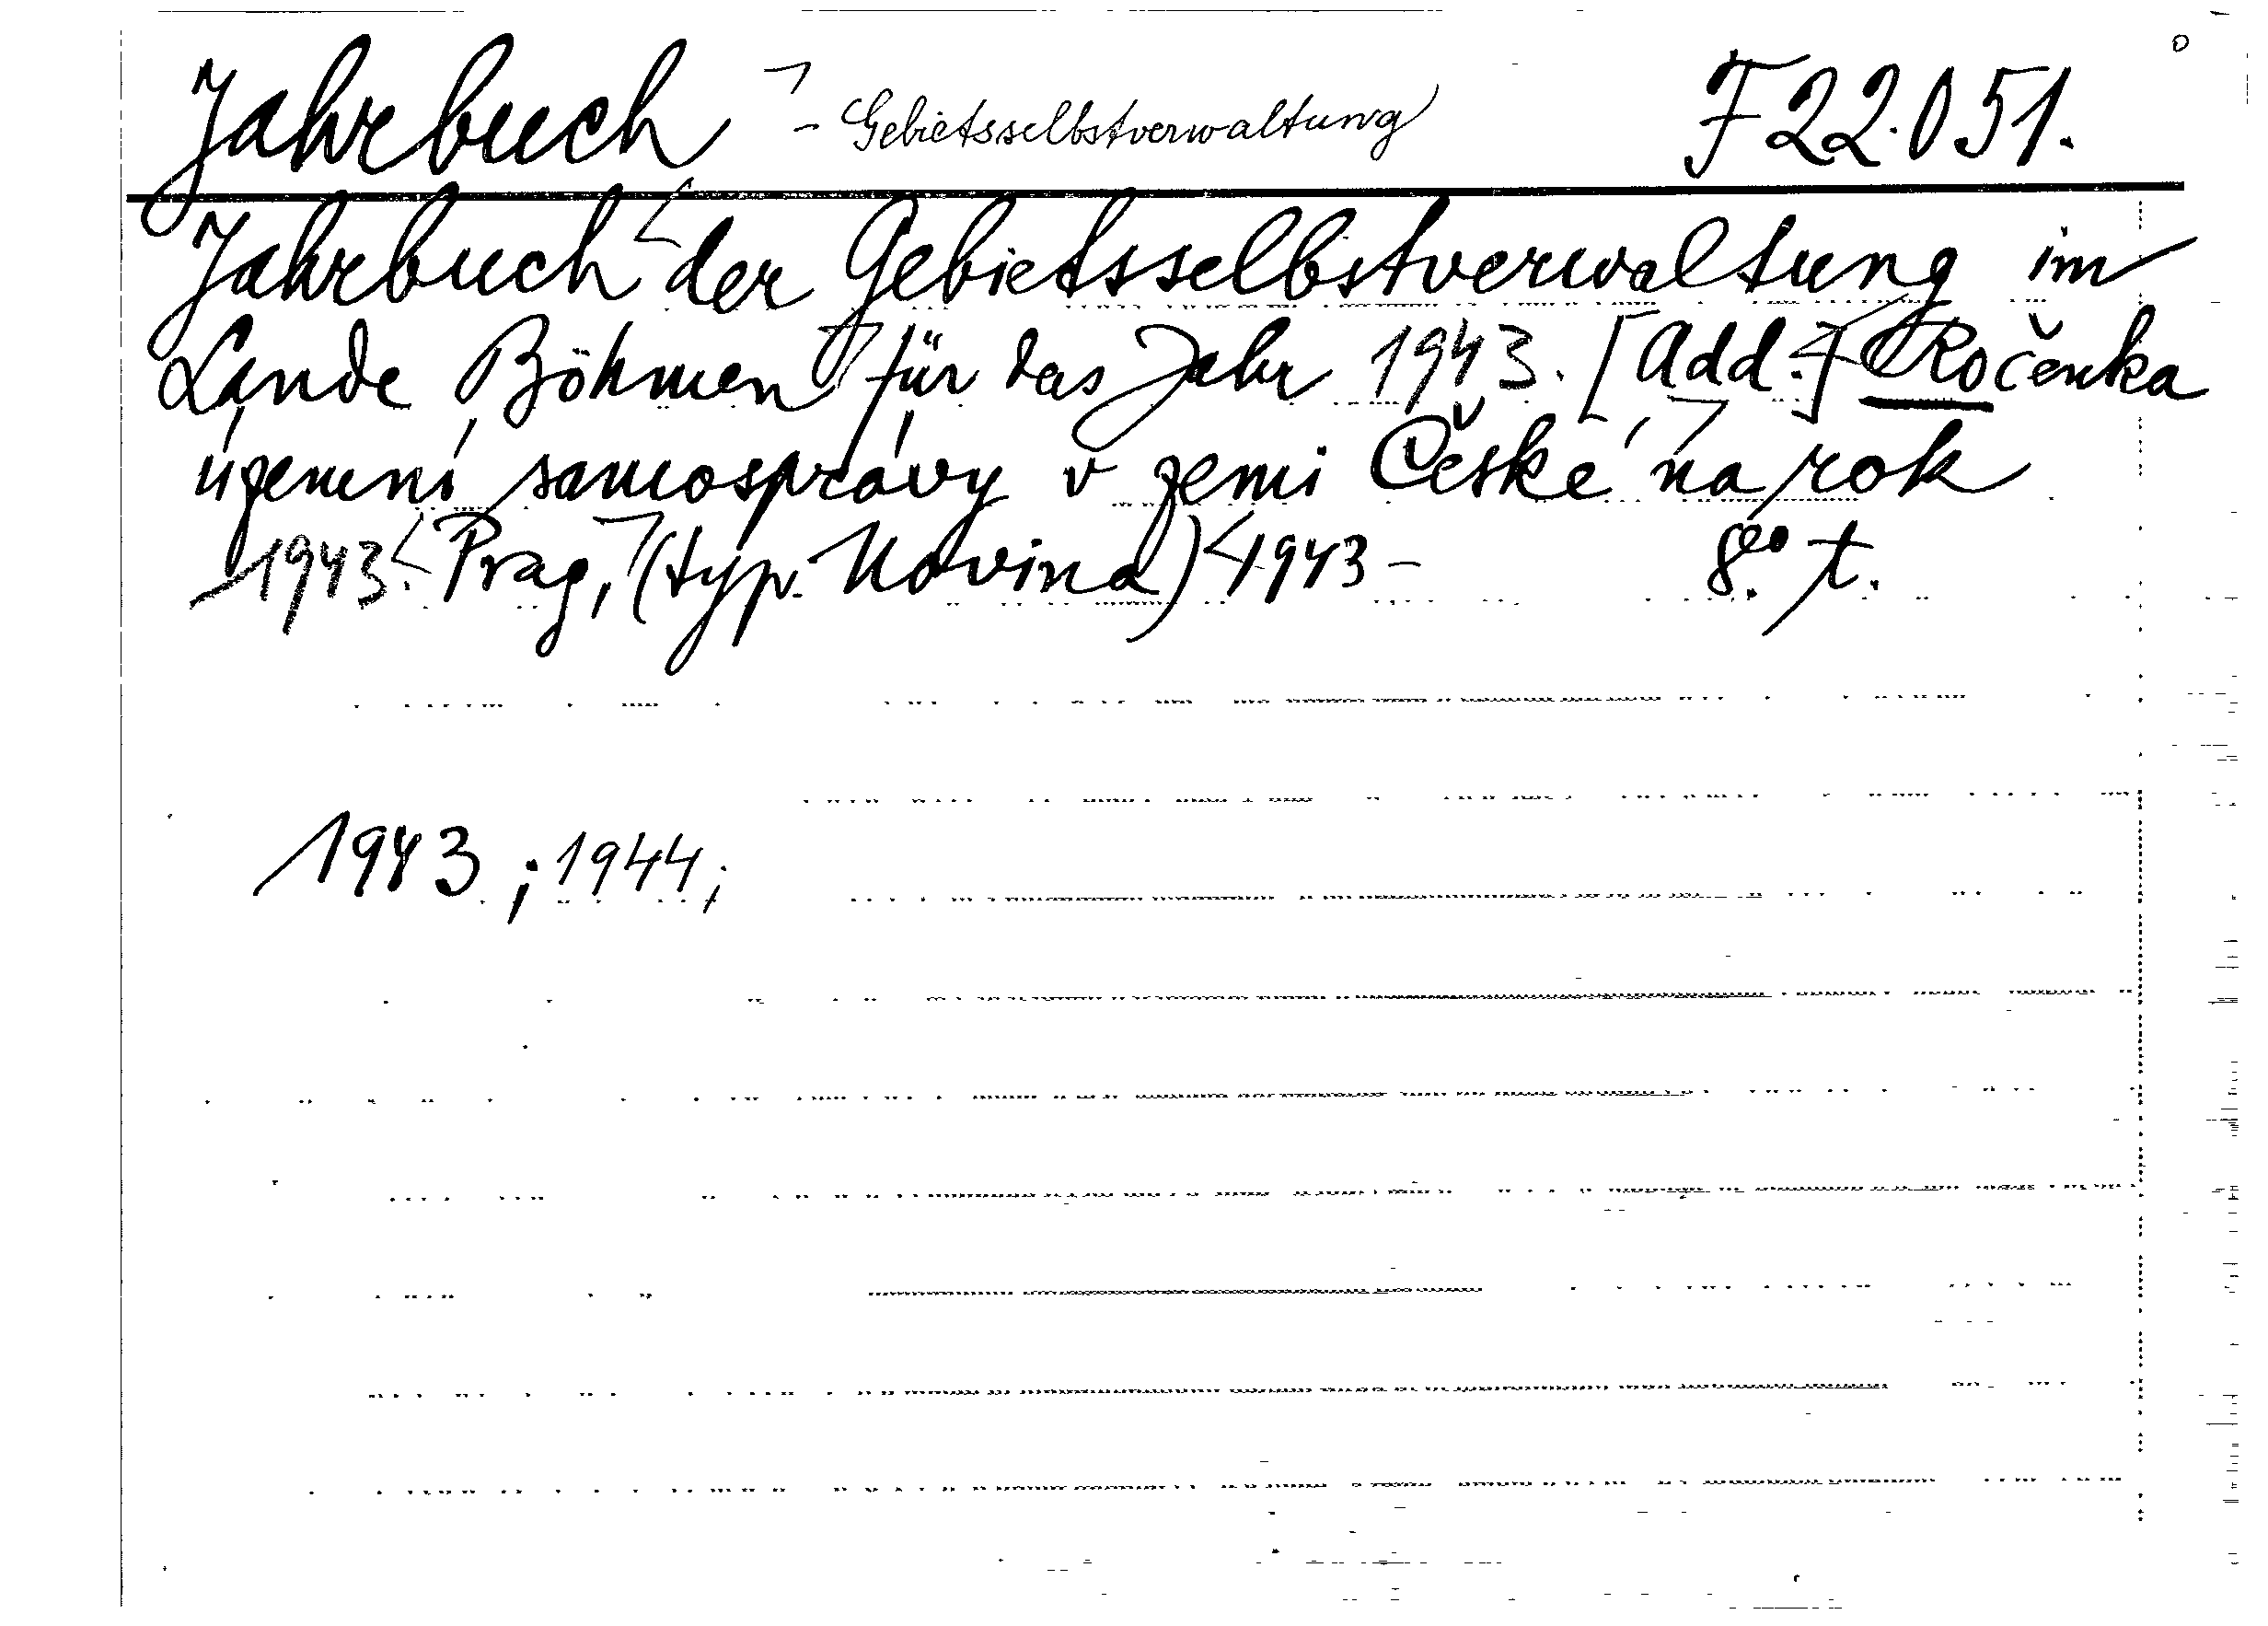 Jahrbuch - Gebietsselbstverwaltung F 22.051.
Jahrbuch der Gebietsselbstverwaltung im
Lande Böhmen für das Jahr 1943. [Add.:] Ročenka
územní samosprávy v zemi České na rok
1943. Prag, (typ. Novina) 1943 - 8.° t.
1943 ; 1944 ;